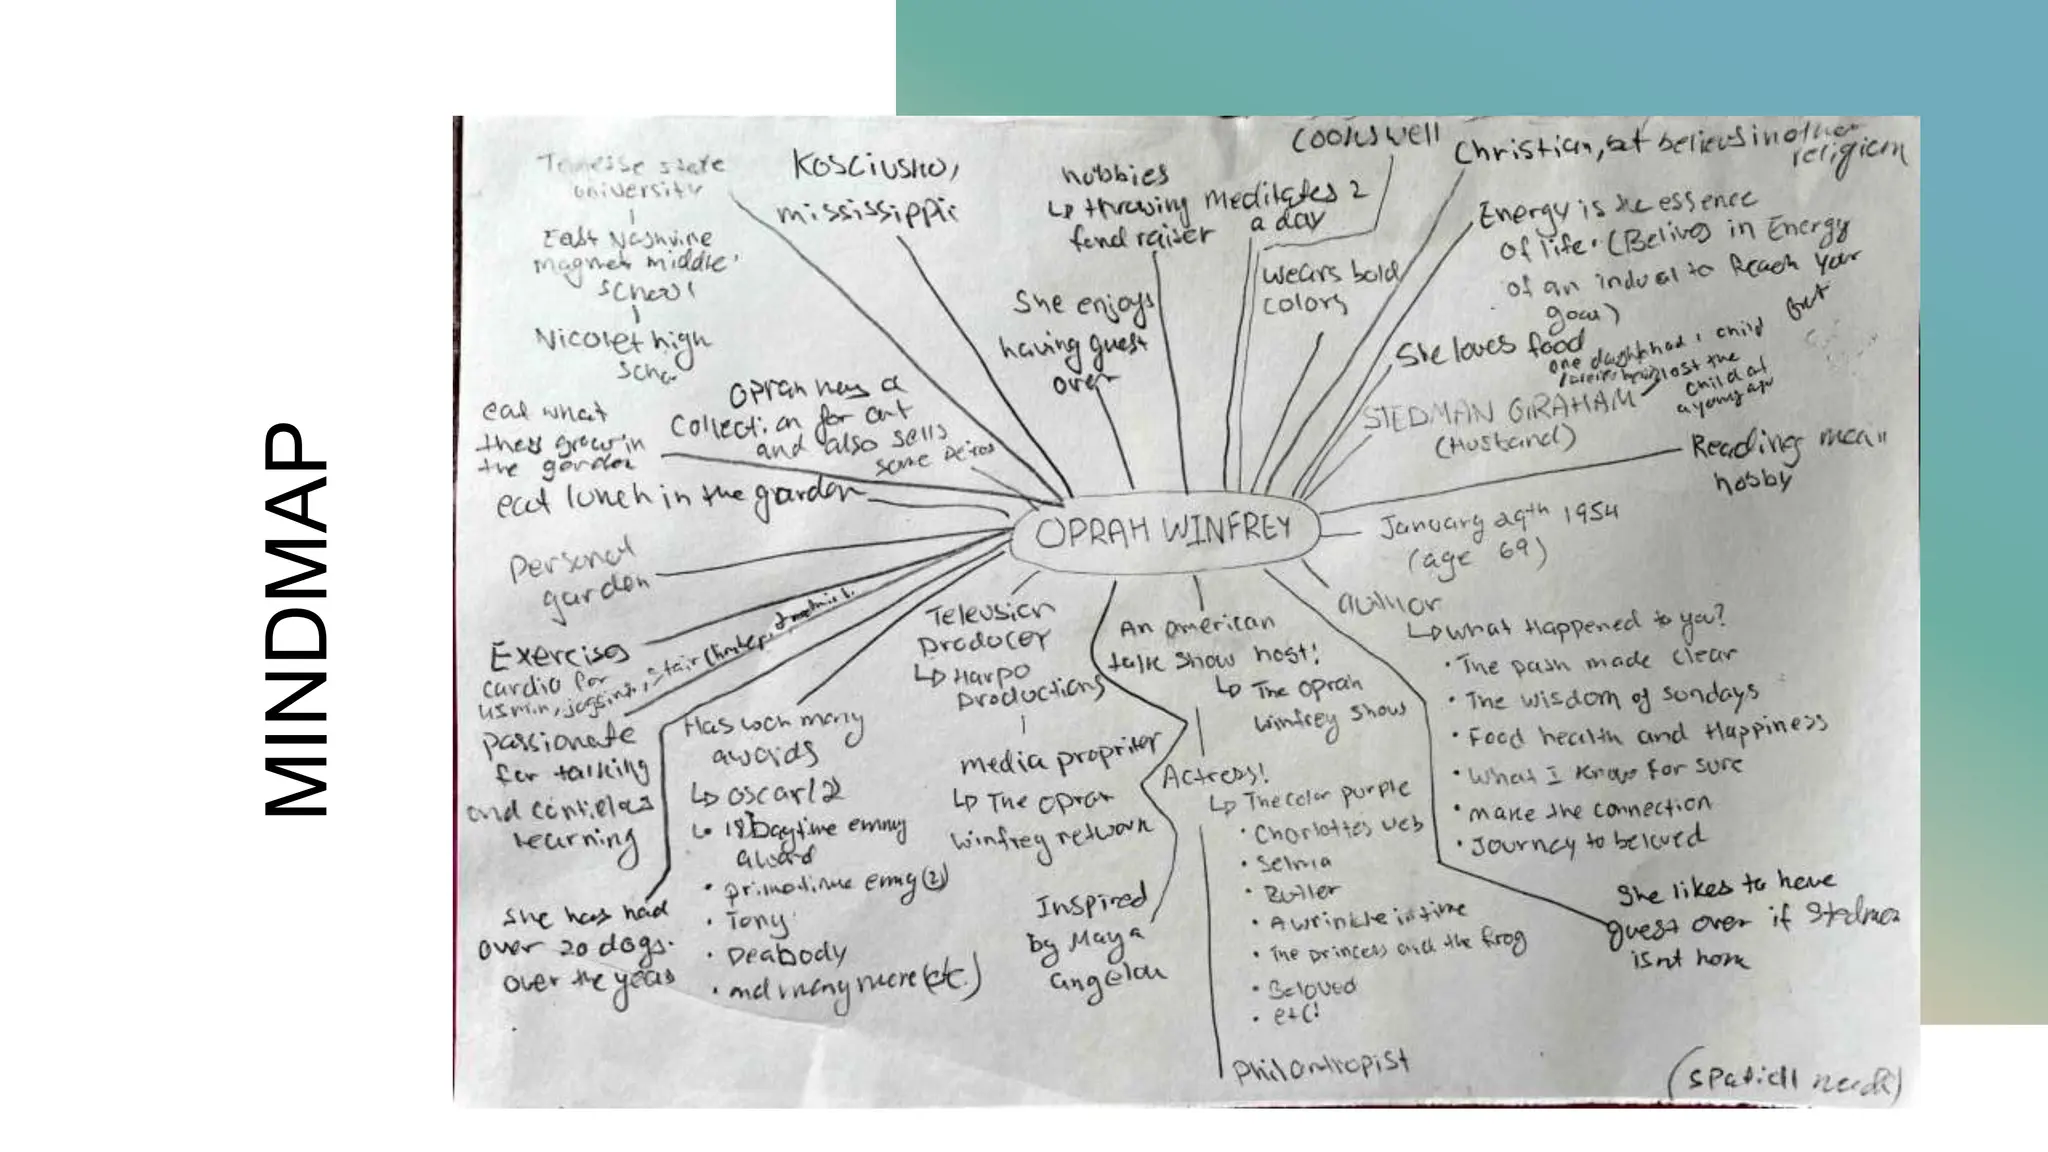 MINDMAP
Tennesse state
university
East Nashville
magnet middle
school
Nicolet high
scho
Kosciusko,
mississippi
hobbies
↳ throwing
fundraiser
She enjoys
having guest
over
Meditates 2
a day
Cooks well
wears bold
colors
Christian, but believes in other
religion
Energy is the essence
of life. (Belives in Energy
of an indual to Reach your
goal)
She loves food
one daughter had 1 child but
lost the
child at
a young age
STEDMAN GRAHAM
(Husband)
Reading main
hobby
January 29th 1954
(age 69)
OPRAH WINFREY
Oprah has a
collection for art
and also sells
some peices
eat what
they grow in
the garden
eat lunch in the garden
Personal
garden
Exercises
cardio for
45 min, jogging, stair climber,
passionate
for talking
and
learning
She has had
over 20 dogs.
over the years
Has won many
awards
↳ oscar/2
↳ 18 Daytime emmy
award
• primetime emmy (2)
• Tony
• Peabody
• and many more (etc.)
Television
Producer
↳ Harpo
Productions
media propriter
↳ The oprah
winfrey network
Inspired
by Maya
angelou
An american
talk show host!
↳ The oprah
winfrey show
Actress!
↳ The color purple
• Charlotte's web
• Selma
• Butler
• A wrinkle in time
• The princess and the frog
• Beloved
• etc!
Philantropist
author
↳ what Happened to you?
• The path made clear
• The wisdom of sundays
• Food health and Happiness
• What I know for sure
• make the connection
• Journey to beloved
She likes to have
guest over if Stedman
isnt home
(spatiall needs)